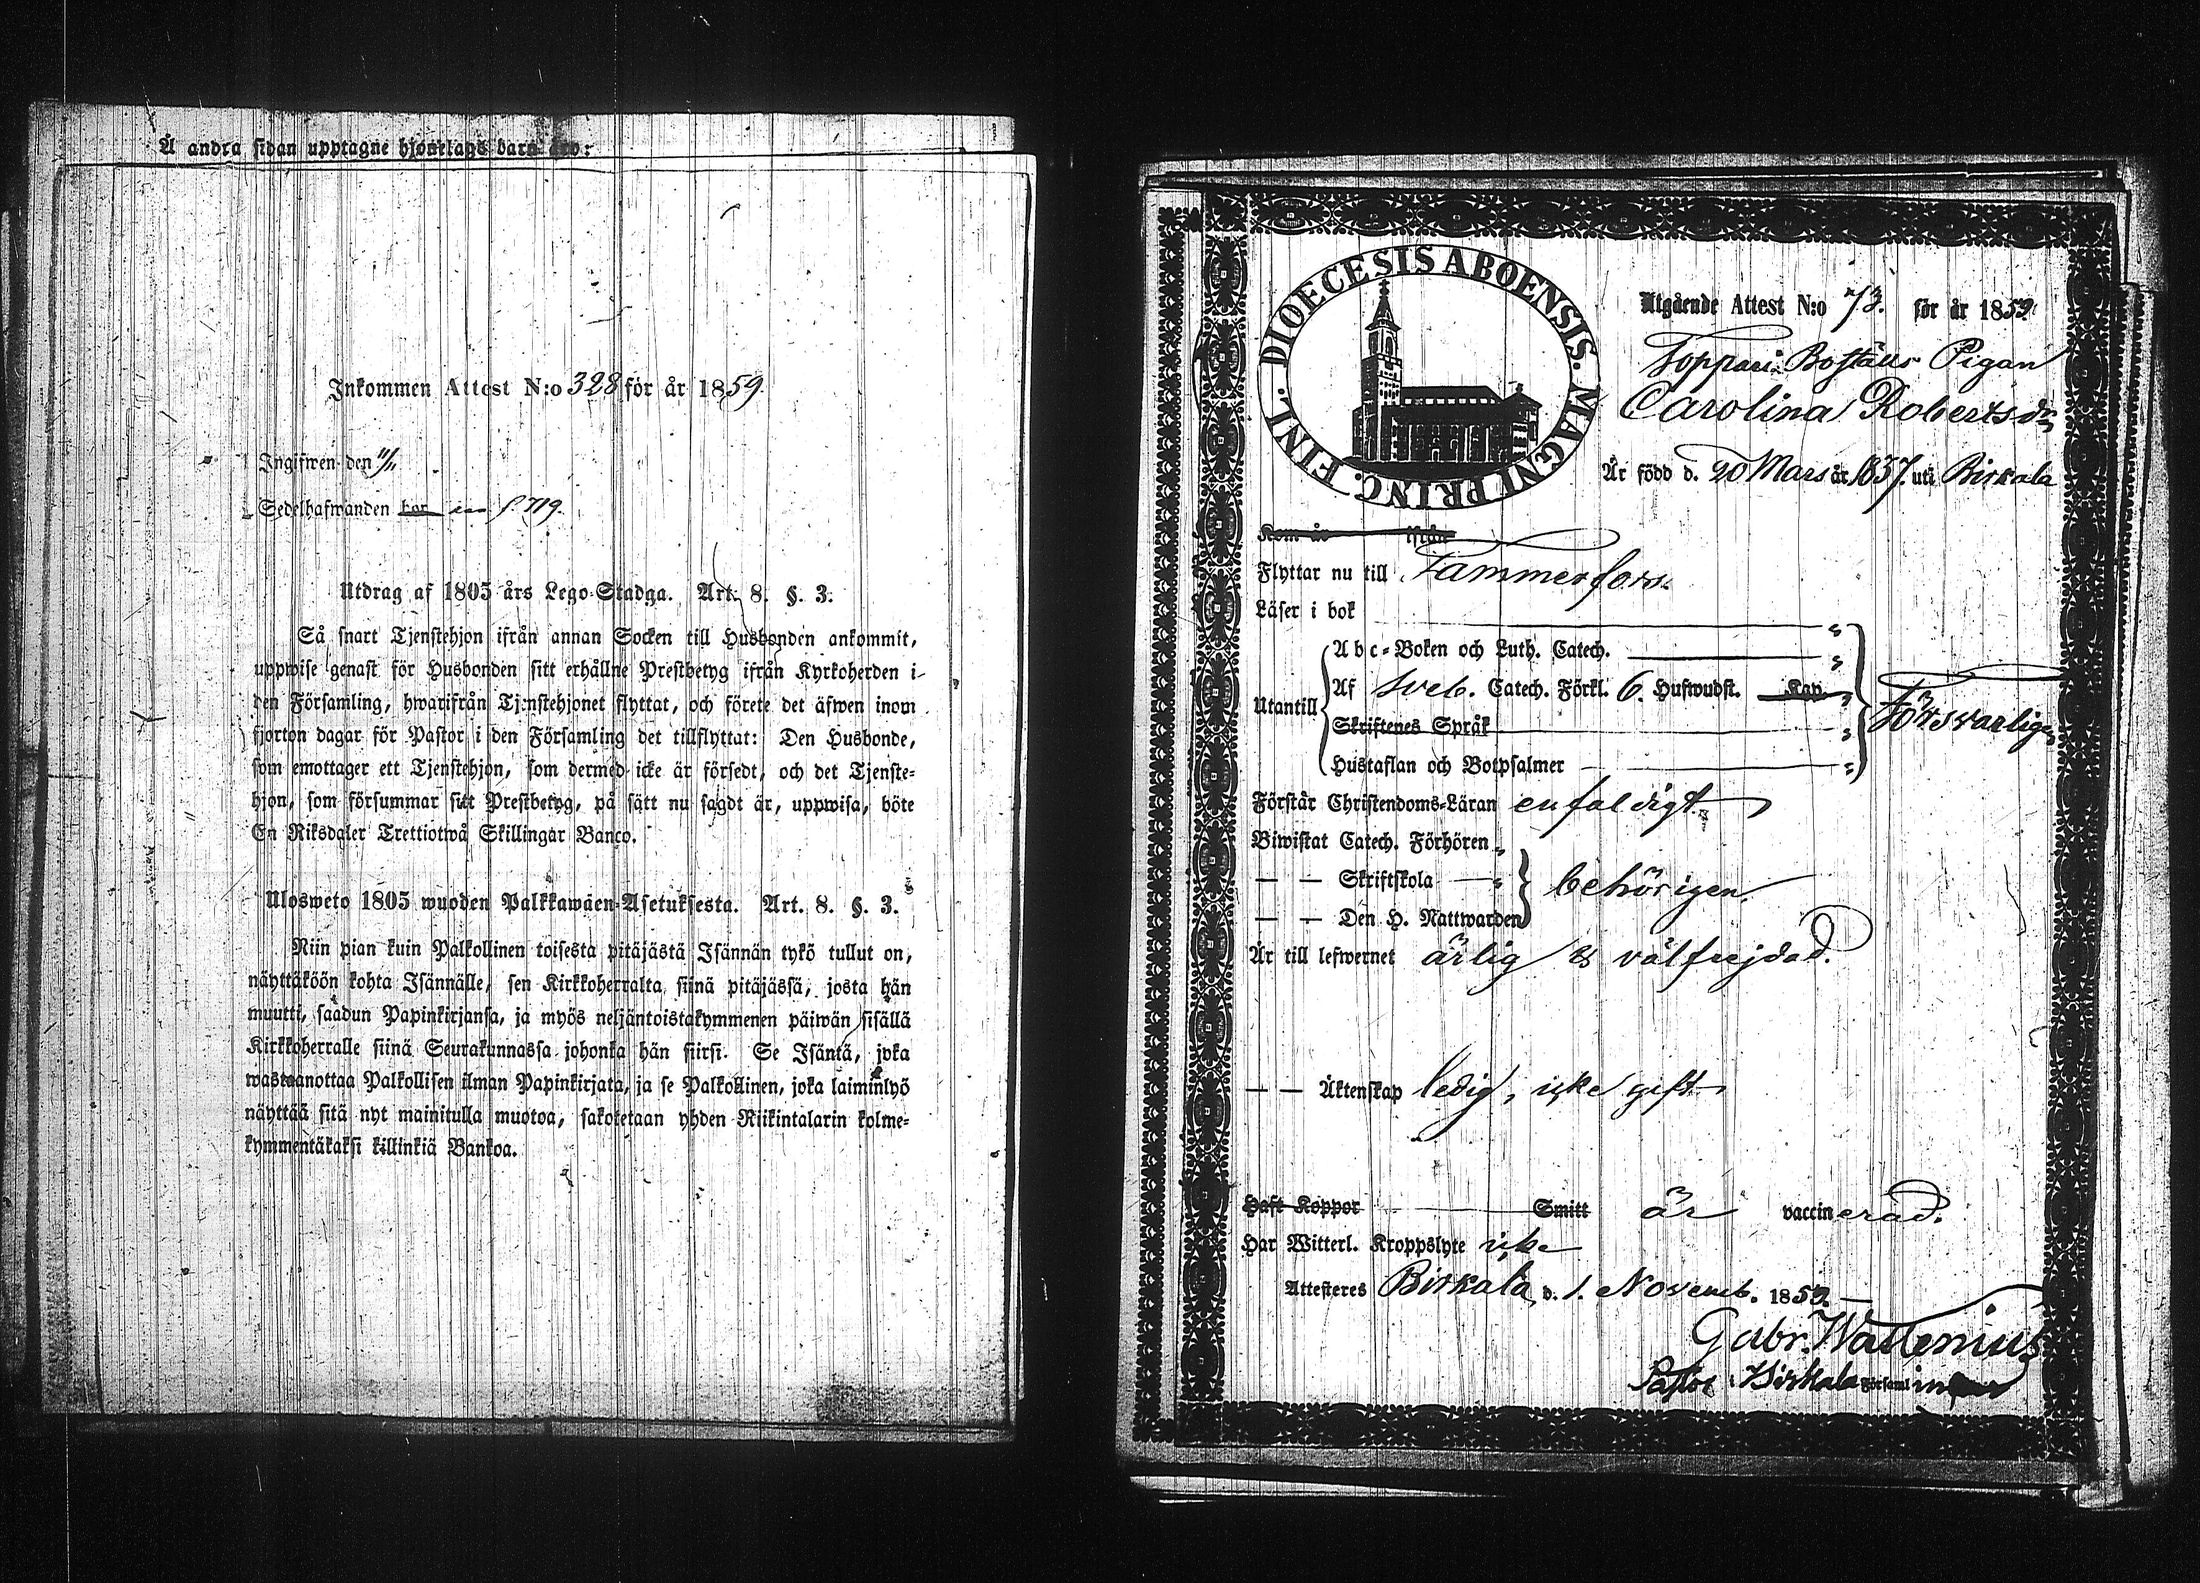 Å andra sidan upptagne hjonelags barn äro:
Inkommen Attest N:o 328 för år 1859.
Ingifwen den 11/11
Sedelhafwanden har in p 719.
Utdrag af 1805 års Lego-Stadga. Art. 8. §. 3.
Så snart Tjenstehjon ifrån annan Socken till Husbonden ankommit,
uppwise genast för Husbonden sitt erhållne Prestbetyg ifrån Kyrkoherden i
den Församling, hwarifrån Tjenstehjonet flyttat, och förete det äfwen inom
fjorton dagar för Pastor i den Församling det tillflyttat: Den Husbonde,
som emottager ett Tjenstehjon, som dermed icke är försedt, och det Tjenste-
hjon, som försummar sitt Prestbetyg, på sätt nu sagdt är, uppwisa, böte
En Riksdaler Trettiotwå Skillingar Banco.
Ulosweto 1805 wuoden Palkkawäen-Asetuksesta. Art. 8. §. 3.
Niin pian kuin Palkollinen toisesta pitäjästä Isännän tykö tullut on,
näyttäköön kohta Isännälle, sen Kirkkoherralta siinä pitäjässä, josta hän
muutti, saadun Papinkirjansa, ja myös neljäntoistakymmenen päiwän sisällä
Kirkkoherralle siinä Seurakunnassa johonka hän siirsi. Se Isäntä, joka
wastaanottaa Palkollisen ilman Papinkirjata, ja se Palkollinen, joka laiminlyö
näyttää sitä nyt mainitulla muotoa, sakotetaan yhden Riikintalarin kolme-
kymmentäkaksi killinkiä Bankoa.
DIOECESIS ABOENSIS. MAGNI PRINC. FINL.
Utgående Attest N:o 73. för år 1859
Toppari Boställs Pigan
Carolina Robertsdr
Är född d. 20 Mars år 1837. uti Birkala
Kom år ifrån
Flyttar nu till Tammerfors.
Läser i bok
Abc-Boken och Luth. Catech.
Utantill Af Sveb. Catech. Förkl. 6. Hufwudst. Kap.
Försvarligen
Skriftenes Språk
Hustaflan och Botpsalmer
Förstår Christendoms-Läran enfaldigt.
Biwistat Catech. Förhören
— — Skriftskola — behörigen.
— — Den H. Nattwarden
Är till lefwernet ärlig & välfrejdad.
— — Äktenskap ledig, icke gift
Haft Koppor Smitt är vaccinerad.
Har Witterl. Kroppslyte icke
Attesteres Birkala d. 1. Novemb. 1859.
Gabr. Wallenius
Pastor i Birkala Församl